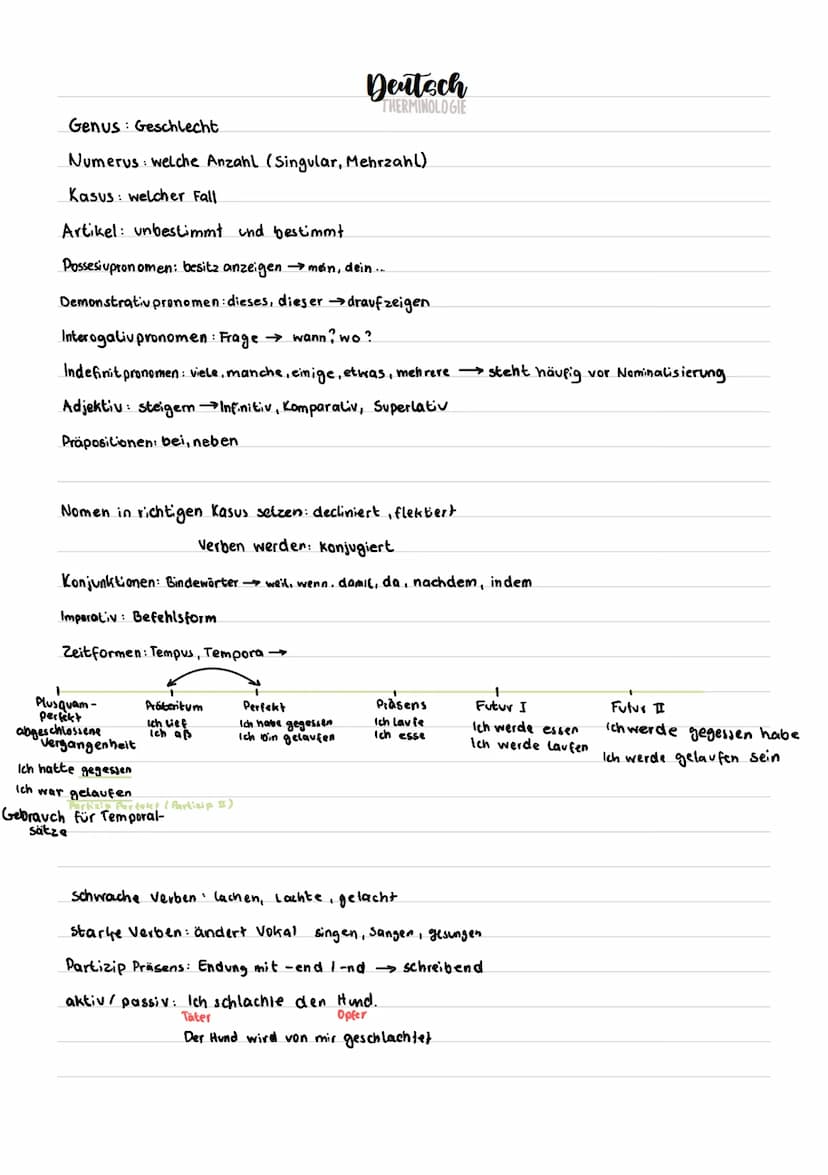 Deutsch
THERMINOLOGIE
Genus: Geschlecht
Numerus: welche Anzahl (Singular, Mehrzahl)
Kasus: welcher Fall
Artikel: unbestimmt und bestimmt
Possesivpronomen: besitz anzeigen → mein, dein...
Demonstrativpronomen: dieses, dieser → draufzeigen
Interogativpronomen: Frage → wann? wo?
Indefinitpronomen: viele, manche, einige, etwas, mehrere → steht häufig vor Nominalisierung
Adjektiv: steigern → Infinitiv, Komparativ, Superlativ
Präpositionen: bei, neben
Nomen in richtigen Kasus setzen: decliniert, flektiert
Verben werden: konjugiert
Konjunktionen: Bindewörter → weil, wenn, damit, da, nachdem, indem
Imperativ: Befehlsform
Zeitformen: Tempus, Tempora →
Plusquam-
perfekt
abgeschlossene
Vergangenheit
Ich hatte gegessen
Ich war gelaufen
Partizip Perfekt (Partizip II)
Gebrauch für Temporal-
sätze
Präteritum
Ich lief
Ich aß
Perfekt
Ich habe gegessen
Ich bin gelaufen
Präsens
Ich laufe
Ich esse
Futur I
Ich werde essen
Ich werde laufen
Futur II
Ich werde gegessen habe
Ich werde gelaufen sein
schwache Verben: lachen, lachte, gelacht
starke Verben: ändert Vokal singen, sangen, gesungen
Partizip Präsens: Endung mit -end / -nd → schreibend
aktiv / passiv: Ich schlachte den Hund.
Täter Opfer
Der Hund wird von mir geschlachtet